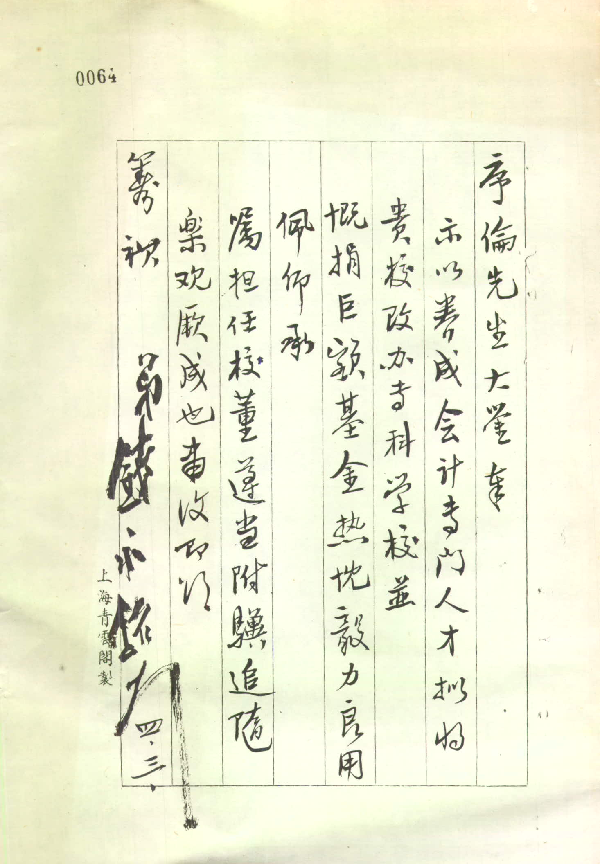 0064
序倫先生大鉴奉
示以养成会计专门人才拟将
贵校改办专科学校並
慨捐巨额基金热忱毅力良用
佩仰承
嘱担任校董遵当附骥追随
樂欢厥成也专復即頌
筹祺
弟錢永銘
四、三、
上海青雲閣製